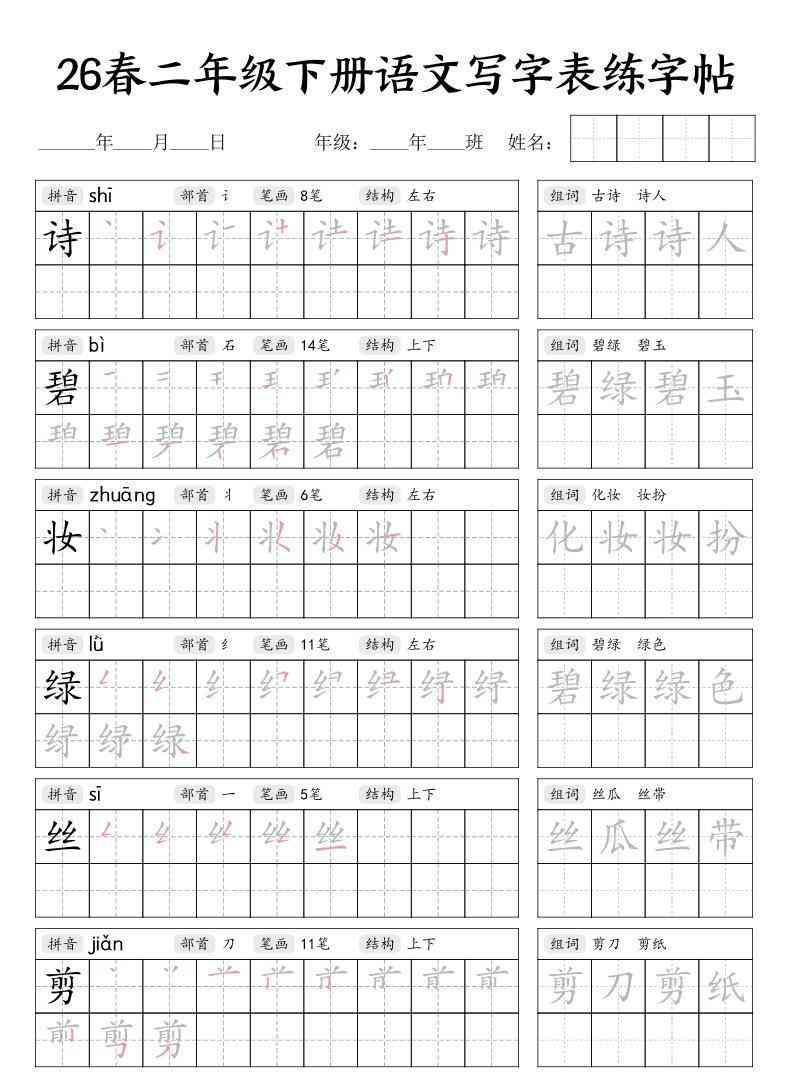 26春二年级下册语文写字表练字帖
______年____月____日 年级：____年____班 姓名：
拼音 shī 部首 讠 笔画 8笔 结构 左右 组词 古诗 诗人
诗 诗 古诗诗人
拼音 bì 部首 石 笔画 14笔 结构 上下 组词 碧绿 碧玉
碧 碧绿碧玉
碧
拼音 zhuāng 部首 丬 笔画 6笔 结构 左右 组词 化妆 妆扮
妆 妆 化妆妆扮
拼音 lǜ 部首 纟 笔画 11笔 结构 左右 组词 碧绿 绿色
绿 碧绿绿色
绿
拼音 sī 部首 一 笔画 5笔 结构 上下 组词 丝瓜 丝带
丝 丝 丝瓜丝带
拼音 jiǎn 部首 刀 笔画 11笔 结构 上下 组词 剪刀 剪纸
剪 剪刀剪纸
前 剪